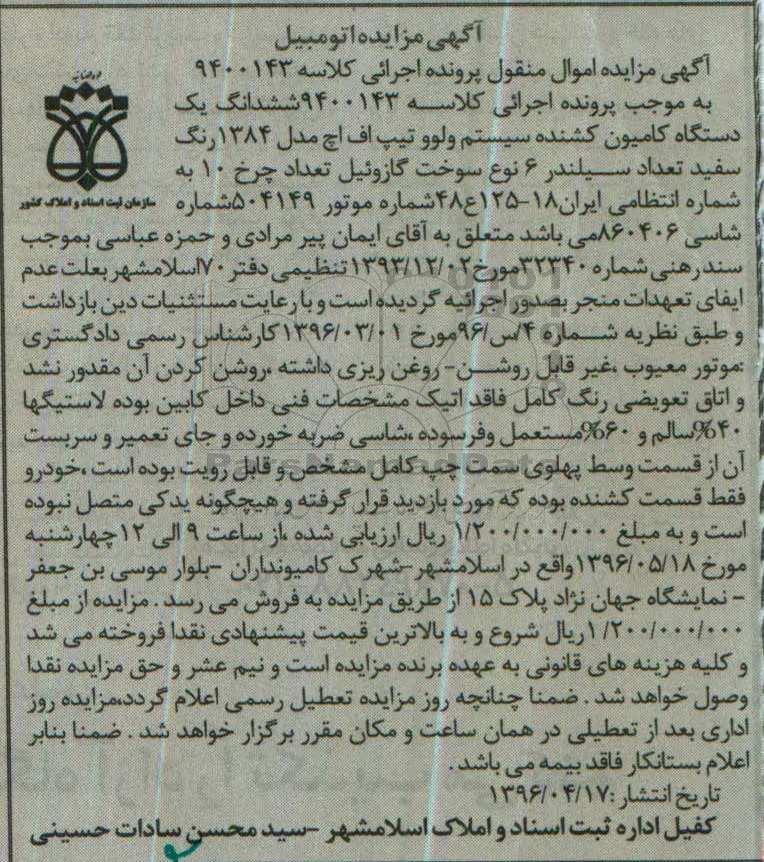 آگهی مزایده اتومبیل
آگهی مزایده اموال منقول پرونده اجرائی کلاسه ۹۴۰۰۱۴۳
به موجب پرونده اجرائی کلاسه ۹۴۰۰۱۴۳ششدانگ یک
دستگاه کامیون کشنده سیستم ولوو تیپ اف اچ مدل ۱۳۸۴رنگ
سفید تعداد سیلندر ۶ نوع سوخت گازوئیل تعداد چرخ ۱۰ به
شماره انتظامی ایران۱۸-۱۲۵ع۴۸شماره موتور ۵۰۴۱۴۹شماره
سازمان ثبت اسناد و املاک کشور
شاسی ۸۶۰۴۰۶می باشد متعلق به آقای ایمان پیر مرادی و حمزه عباسی بموجب
سند رهنی شماره ۳۲۳۴۰مورخ۱۳۹۳/۱۲/۰۲تنظیمی دفتر ۷۰اسلامشهر بعلت عدم
ایفای تعهدات منجر بصدور اجرائیه گردیده است و با رعایت مستثنیات دین بازداشت
و طبق نظریه شماره ۴/س/۹۶مورخ ۱۳۹۶/۰۳/۰۱کارشناس رسمی دادگستری
:موتور معیوب ،غیر قابل روشن- روغن ریزی داشته ،روشن کردن آن مقدور نشد
و اتاق تعویضی رنگ کامل فاقد اتیک مشخصات فنی داخل کابین بوده لاستیگها
۴۰%سالم و ۶۰%مستعمل وفرسوده ،شاسی ضربه خورده و جای تعمیر و سربست
آن از قسمت وسط پهلوی سمت چپ کامل مشخص و قابل رویت بوده است ،خودرو
فقط قسمت کشنده بوده که مورد بازدید قرار گرفته و هیچگونه یدکی متصل نبوده
است و به مبلغ ۱/۲۰۰/۰۰۰/۰۰۰ ریال ارزیابی شده ،از ساعت ۹ الی ۱۲ چهارشنبه
مورخ ۱۳۹۶/۰۵/۱۸واقع در اسلامشهر-شهرک کامیونداران -بلوار موسی بن جعفر
- نمایشگاه جهان نژاد پلاک ۱۵ از طریق مزایده به فروش می رسد . مزایده از مبلغ
۱/۲۰۰/۰۰۰/۰۰۰ ریال شروع و به بالاترین قیمت پیشنهادی نقدا فروخته می شد
و کلیه هزینه های قانونی به عهده برنده مزایده است و نیم عشر و حق مزایده نقدا
وصول خواهد شد . ضمنا چنانچه روز مزایده تعطیل رسمی اعلام گردد،مزایده روز
اداری بعد از تعطیلی در همان ساعت و مکان مقرر برگزار خواهد شد . ضمنا بنابر
اعلام بستانکار فاقد بیمه می باشد .
تاریخ انتشار :۱۳۹۶/۰۴/۱۷
کفیل اداره ثبت اسناد و املاک اسلامشهر -سید محسن سادات حسینی